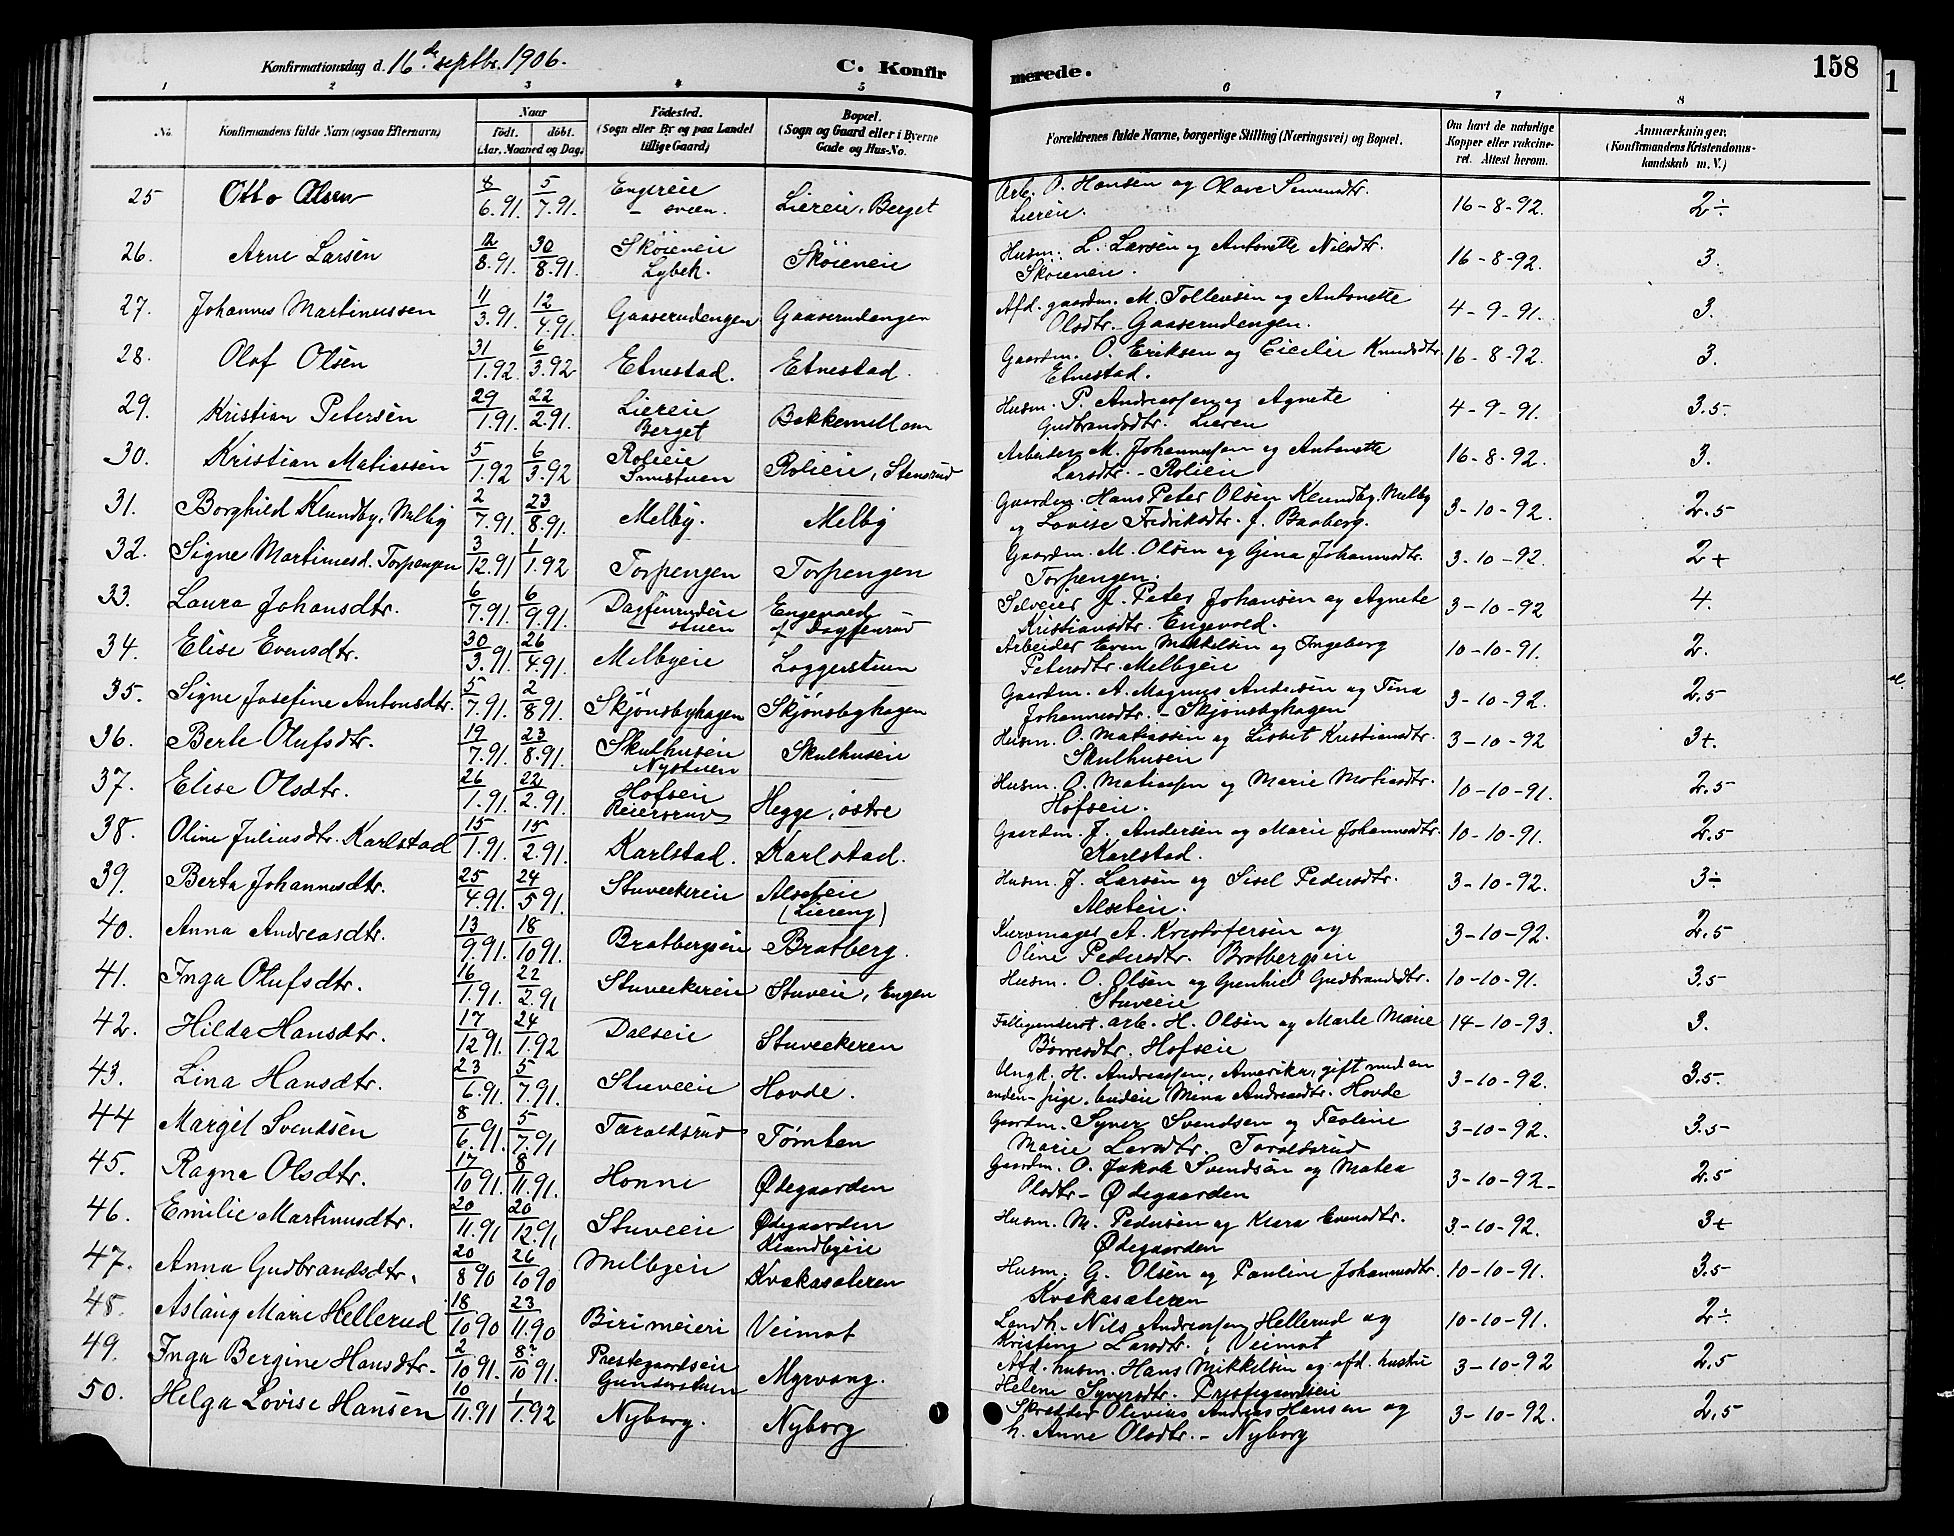 Konfirmationsdag d. 16de septbr. 1906. C. Konfirmerede. 158
1 2 3 4 5 6 7 8
No. Konfirmandens fulde Navn (ogsaa Efternavn) Naar født. døbt. (Aar, Maaned og Dag.) Fødested. (Sogn eller By og paa Landet tillige Gaard) Bopæl. (Sogn og Gaard eller i Byerne Gade og Hus-No. Forældrenes fulde Navne, borgerlige Stilling (Næringsvei) og Bopæl. Om havt de naturlige Kopper eller vakcineret. Attest herom. Anmærkninger. (Konfirmandens Kristendomskundskab m. V.)
25 Otto Olsen 8/6.91. 5/7.91. Engereie - sveen. Liereie, Berget Arb. O. Hansen og Olave Simensdtr. Liereie. 16-8-92. 2÷
26. Arne Larsen 12/8.91. 30/8.91. Skøieneie Lybek. Skøieneie Husm. L. Larsen og Antonette Nilsdtr. Skøieneie. 16-8-92. 3.
27. Johannes Martinussen 11/3.91. 12/4.91. Gaaserudengen Gaaserudengen Afd. gaardm. M. Tollevsen og Antonette Olsdtr. Gaaserudengen. 4-9-91. 3.
28. Olaf Olsen 31/1.92. 6/3.92 Etnestad. Etnestad. Gaardm. O. Eriksen og Cicilie Knudsdtr Etnestad. 16-8-92. 3.
29. Kristian Petersen 29/1.91. 22/2.91. Liereie Berget Bakkemellom Husm. P. Andreassen og Agnete Gudbrandsdtr. Lieren 4-9-91. 3.5.
30. Kristian Matiassen 5/1.92 6/3.92 Rolieie Smestuen Rolieie, Stensrud Arbeider M. Johannessen og Antonette Larsdtr. - Rolieie 16-8-92. 3.
31. Borghild Klundby, Melby 2/7.91. 23/8.91. Melby. Melby Gaardm. Hans Peter Olsen Klundby, Melby og Lovise Fredriksdtr. f. Baaberg. 3-10-92. 2.5
32. Signe Martinusd. Torpengen 3/12.91 1/1.92 Torpengen Torpengen Gaardm. M. Olsen og Gina Johannesdtr. Torpengen. 3-10-92. 2+
33. Laura Johansdtr. 6/7.91. 6/9.91. Dagfinrudeie - stuen Engevold f Dagfinrud Selveier J. Peter Johansen og Agnete Kristiansdtr. Engevold. 3-10-92 4.
34. Elise Evensdtr. 30/3.91. 26/4.91. Melbyeie Loggerstuen Arbeider Even Mikkelsen og Ingeborg Petersdtr. Melbyeie 10-10-91. 2.
35. Signe Josefine Antonsdtr. 5/7.91. 2/8 91. Skjønsbyhagen Skjønsbyhagen Gaardm. A. Magnus Andersen og Tina Johannesdtr. - Skjønsbyhagen 3-10-92. 2.5
36. Berte Olufsdtr. 19/7.91. 23/8.91. Skulhuseie Nystuen Skulhuseie Husm. O. Matiassen og Lisbet Kristiansdtr. Skulhuseie 3-10-92 3+.
37. Elise Olsdtr. 26/1.91. 22/2.91. Hofseie Reiersrud Hegge, østre Husm. O. Matiassen og Marie Matiasdtr. Hofseie. 10-10-91. 2.5
38. Oline Juliusdtr. Karlstad 15/1.91. 15/2.91. Karlstad. Karlstad. Gaardm. J. Andersen og Marie Johannesdtr. Karlstad. 10-10-91. 2.5
39. Berta Johannesdtr. 25/4.91. 24/5 91. Stuveekereie Alseteie (Liereng) Husm. J. Larsen og Sisel Pedersdtr. Alseteie. 3-10-92. 3÷
40. Anna Andreasdtr. 13/9.91 18/10 91. Bratbergseie Bratberg. Kurvmager A. Kristofersen og Oline Pedersdtr. Bratbergseie 3-10-92. 2.5
41. Inga Olufsdtr. 16/1.91. 22/2.91 Stuveekereie Stuveie, Engen Husm. O. Olsen og Gunhild Gudbrandsdtr. Stuveeie 10-10-91. 3.5
42. Hilda Hansdtr. 17/12 91. 24/1.92 Dalseie Stuveekeren Fattigunderst. arb. H. Olsen og Marte Marie Børresdtr. Hofseie 14-10-93. 3.
43. Lina Hansdtr. 23/6.91. 5/7.91. Stuveeie Hovde. Ungk. H. Andreassen, Amerika, gift med en anden - pige, budeie Mina Andreasdtr. Hovde 3-10-92. 3.5.
44 Margit Svendsen 8/6.91. 5/7.91 Taraldsrud Tømten Gaardm. Syver Svendsen og Teoline Marie Larsdtr. Taraldsrud 3-10-92. 3.5
45. Ragna Olsdtr. 17/10 91. 8/11.91. Honne Ødegaarden Gaardm. O. Jakob Svendsen og Matea Olsdtr - Ødegaarden 3-10-92- 2.5
46. Emilie Martinusdtr. 20/11.91 20/12.91 Stuveeie Ødegaarden Klundbyeie Husm. M. Pedersen og Klara Evensdtr. Ødegaarden 3-10-92. 3+
47. Anna Gudbrandsdtr. 20/8 90 26/10 90 Melbyeie Kvakasæteren Husm. G. Olsen og Pauline Johannesdtr. Kvakasæteren 10-10-91. 3.5
48. Aslaug Marie Hellerud 18/10 90 23/11.90 Birimeieri Veimot Landh. Nils Andreassen Hellerud og Kristine Larsdtr., Veimot 10-10-91. 2÷
49. Inga Bergine Hansdtr. 2/10 91. 8/10 91. Prestegaardseie Gunderstuen Myrvang. Afd. husm. Hans Mikkelsen og afd. hustru Helene Syversdtr. Prestegaardseie 3-10-92 2.5
50. Helga Lovise Hansen 10/11.91 1/1.92 Nyborg. Nyborg Skrædder Olivius Andreas Hansen og h. Anne Olsdtr. - Nyborg 3-10-92. 2.5